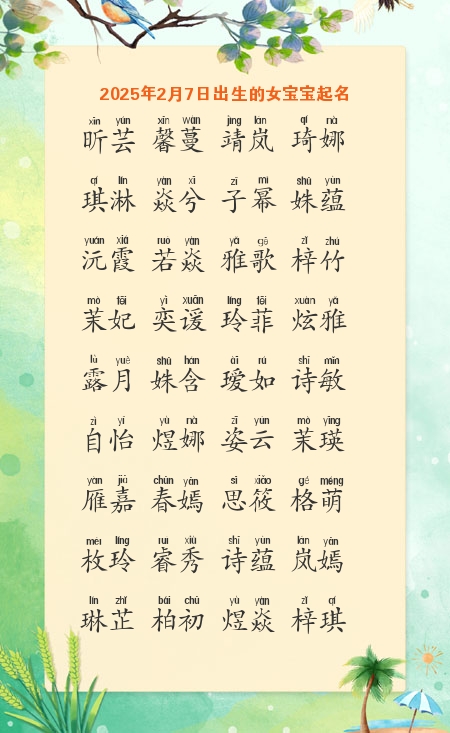 2025年2月7日出生的女宝宝起名
xīn yún xīn wàn jìng lán qí nà
昕芸 馨蔓 靖岚 琦娜
qí lín yàn xī zǐ mì shū yùn
琪淋 焱兮 子幂 姝蕴
yuán xiá ruò yàn yǎ gē zǐ zhú
沅霞 若焱 雅歌 梓竹
mò fēi yì xuān líng fēi xuàn yǎ
茉妃 奕谖 玲菲 炫雅
lù yuè shū hán ài rú shī mǐn
露月 姝含 瑷如 诗敏
zì yí yù nà zī yún mò yīng
自怡 煜娜 姿云 茉瑛
yàn jiā chūn yān sī xiǎo gé méng
雁嘉 春嫣 思筱 格萌
méi líng ruì xiù shī yùn lán yān
枚玲 睿秀 诗蕴 岚嫣
lín zhǐ bǎi chū yù yàn zǐ qí
琳芷 柏初 煜焱 梓琪